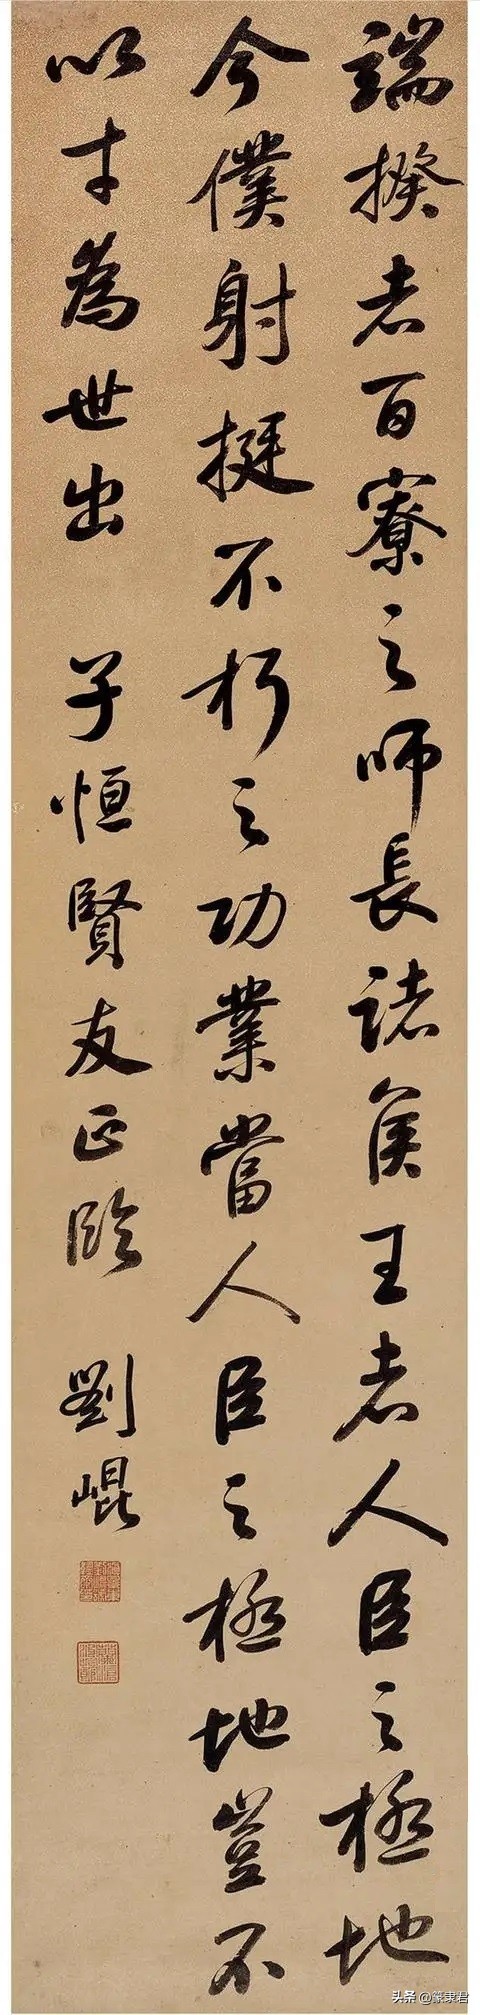 端揆者百寮之師長諸侯王者人臣之極地
今僕射挺不朽之功業當人臣之極地豈不
以才為世出 子恒賢友正臨 劉崐
头条 @篆隶君